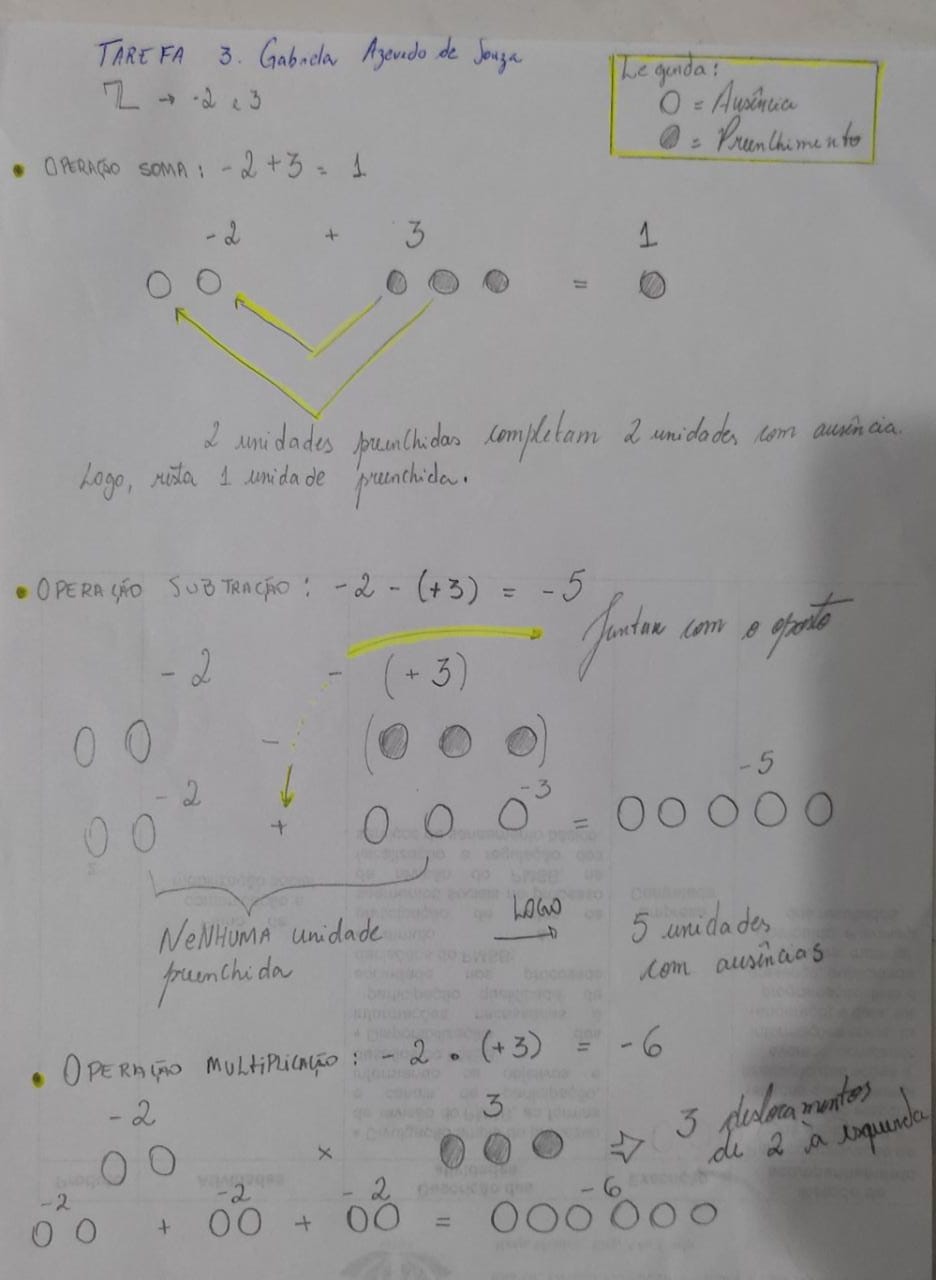 TAREFA 3. Gabriela Azevedo de Souza
Z → -2 e 3
Legenda:
O = Ausência
● = Preenchimento
• OPERAÇÃO SOMA: -2+3 = 1
-2 + 3 1
O O ● ● ● = ●
2 unidades preenchidas completam 2 unidades com ausência.
Logo, resta 1 unidade preenchida.
• OPERAÇÃO SUBTRAÇÃO: -2 - (+3) = -5
Juntar com o oposto
-2 - (+3)
O O - (● ● ●)
-2 -3 -5
O O + O O O = O O O O O
NENHUMA unidade
preenchida
LOGO
→
5 unidades
com ausências
• OPERAÇÃO MULTIPLICAÇÃO: -2 • (+3) = -6
-2 3
O O × ● ● ● ⇨ 3 deslocamentos
de 2 à esquerda
-2 -2 -2 -6
O O + O O + O O = O O O O O O